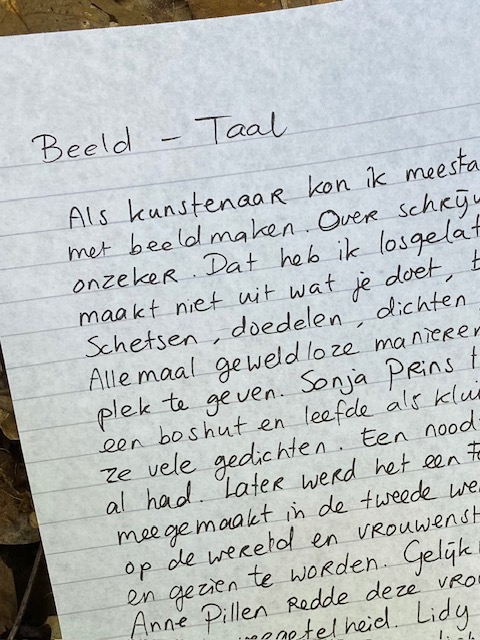 Beeld - Taal
Als kunstenaar kon ik meesta
met beeldmaken. Over schrijv
onzeker. Dat heb ik losgelat
maakt niet uit wat je doet, t
Schetsen, doedelen, dichten
Allemaal geweldloze manieren
plek te geven. Sonja Prins t
een boshut en leefde als klui
ze vele gedichten. Een nood
al had. Later werd het een
meegemaakt in de tweede we
op de wereld en vrouwenst
en gezien te worden. Gelijk
Anne Pillen Redde deze vro
Lidy